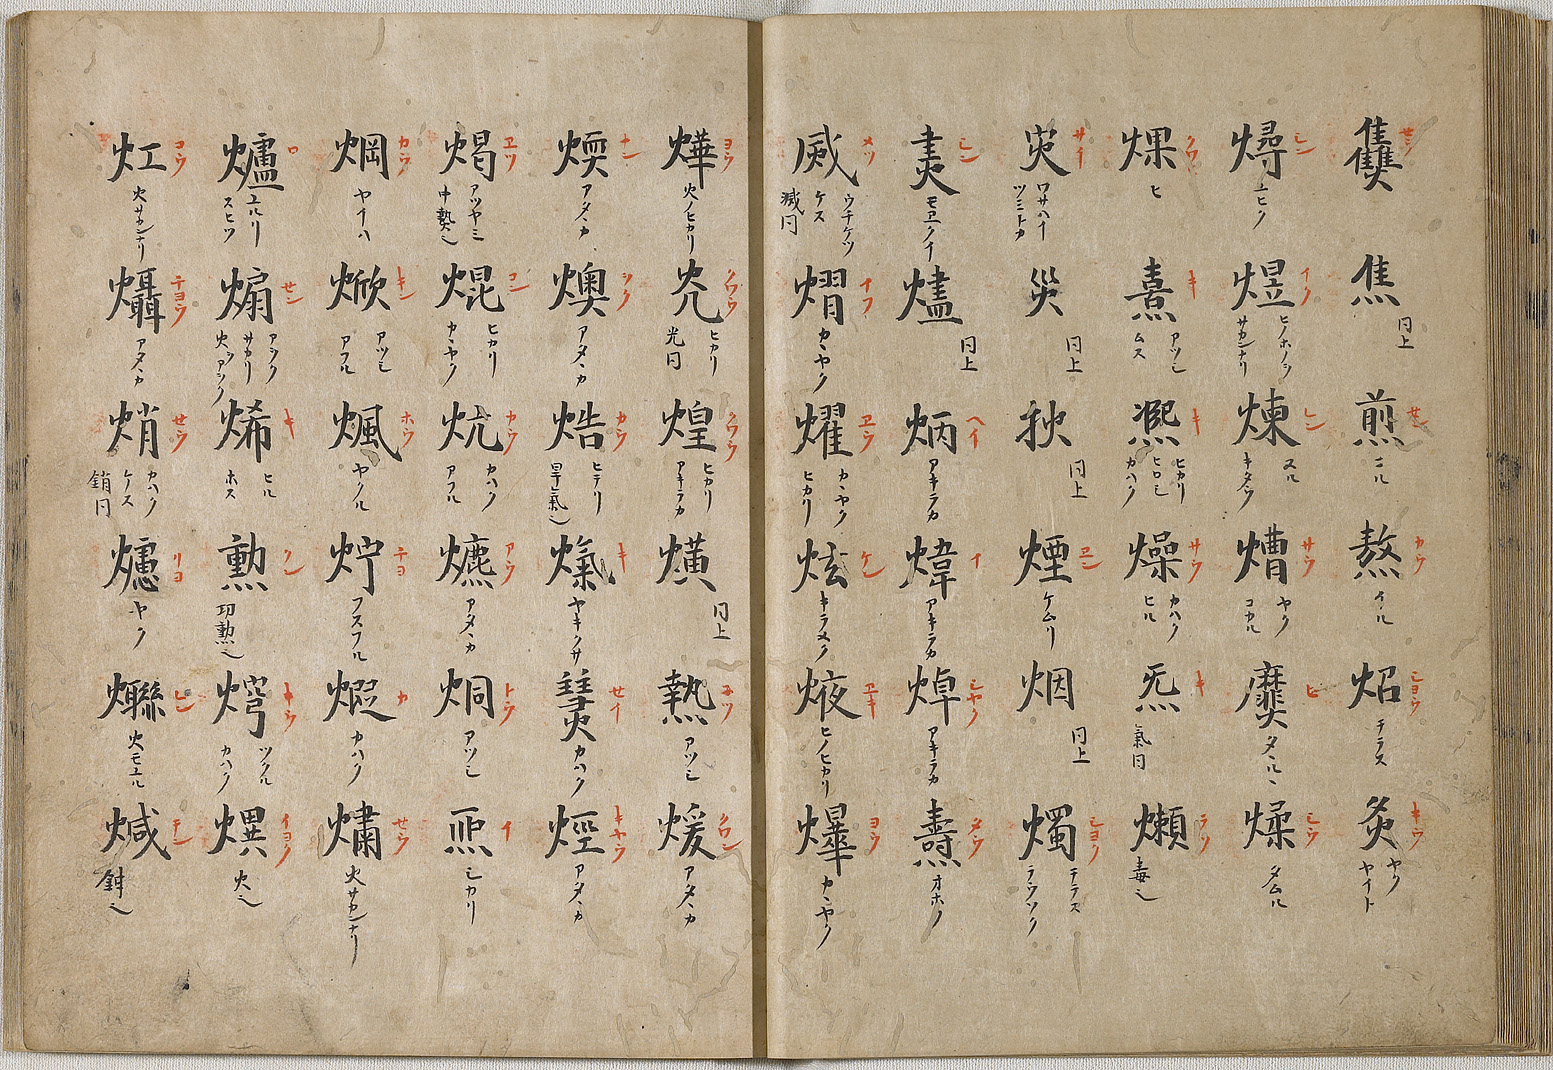 セウ
焦 同上
煎 セン ニル
熬 カウ イル
炤 シヨウ テラス
灸 キウ ヤク ヤイト
燖 シン ユヒク
煜 イク ヒノホノヲ サカンナリ
煉 レン ネル キタウ
熷 サウ ヤク コカル
タヽル
煣 シウ タムル
煤 クワ ヒ
熹 キ アツシ ムス
凞 キ ヒカリ ヒロシ カハク
燥 サウ カハク ヒル
炁 キ 氣同
ラツ 毒之
災 サイ ワサハイ ツミトカ
灾 同上
秋 同上
煙 エン ケムリ
烟 同上
燭 シヨク テラス ラウソク
シン モエクイ
燼 同上
炳 ヘイ アキラカ
煒 イ アキラカ
焯 シヤク アキラカ
燾 タウ オホク
烕 メツ ウチケツ ケス 滅同
熠 イフ カヽヤク
燿 エウ カヽヤク ヒカリ
炫 ケン キラメク
焲 エキ ヒノヒカリ
ヨウ カヽヤク
燁 ヨウ 火ノヒカリ
灮 クワウ ヒカリ 光同
煌 クワウ ヒカリ アキラカ
熿 同上
熱 アツシ
煖 クワン アタヽカ
煗 ナン アタヽカ
燠 アタヽカ
焅 カウ ヒテリ 旱氣之
キ ヤキクサ
セイ カハク
烴 キヤウ アタヽカ
暍 エツ アツヤミ 中熱之
焜 コン ヒカリ カヽヤク
炕 カウ カハク アフル
アウ アタヽカ
烔 トウ アツシ
イ ヒカリ
焵 カウ ヤイハ
焮 キン アツシ アフル
ホウ ヤクル
チヨ フスフル
煆 カ カハク
熽 セウ 火サカンナリ
爐 ロ ユルリ スヒツ
煽 セン アツク サカリ 火ツアツク
烯 キ ヒル ホス
勳 クン 功勲之
キウ ツクル カハク
イヨク 火之
灴 コウ 火サカンナリ
チヨウ アタヽカ
焇 セウ カハク ケス 銷同
爈 リヨ ヤク
レン 火モユル
煘 チン 之